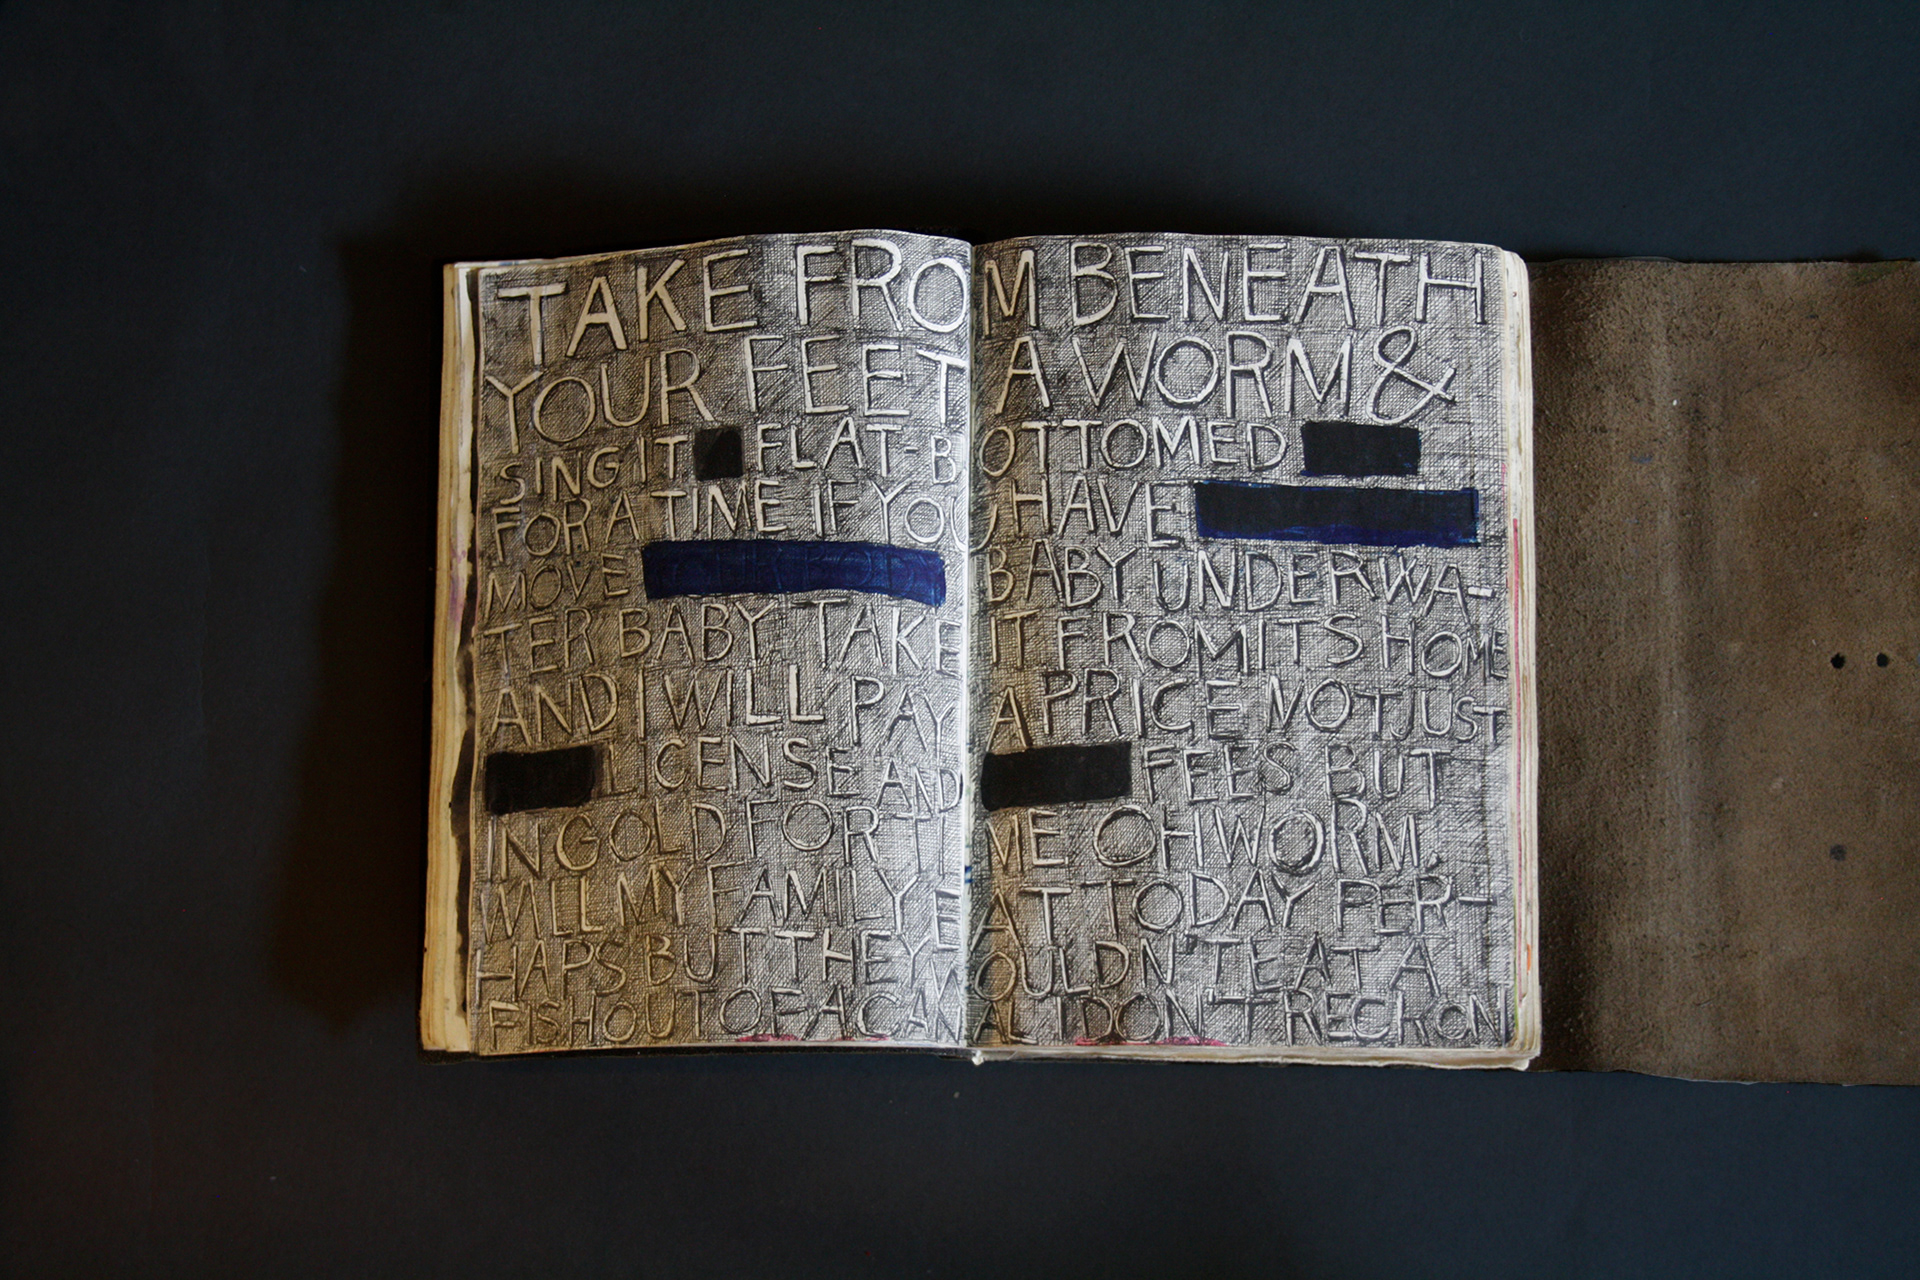 TAKE FROM BENEATH
YOUR FEET A WORM &
SING IT FLAT-BOTTOMED
FOR A TIME IF YOU HAVE
MOVE BABY UNDERWA-
TER BABY. TAKE IT FROM ITS HOME
AND I WILL PAY A PRICE NOT JUST
LICENSE AND FEES BUT
IN GOLD FOR TIME OH WORM,
WILL MY FAMILY EAT TODAY PER-
HAPS BUT THEY WOULDN'T EAT A
FISH OUT OF A CANAL I DON'T RECKON